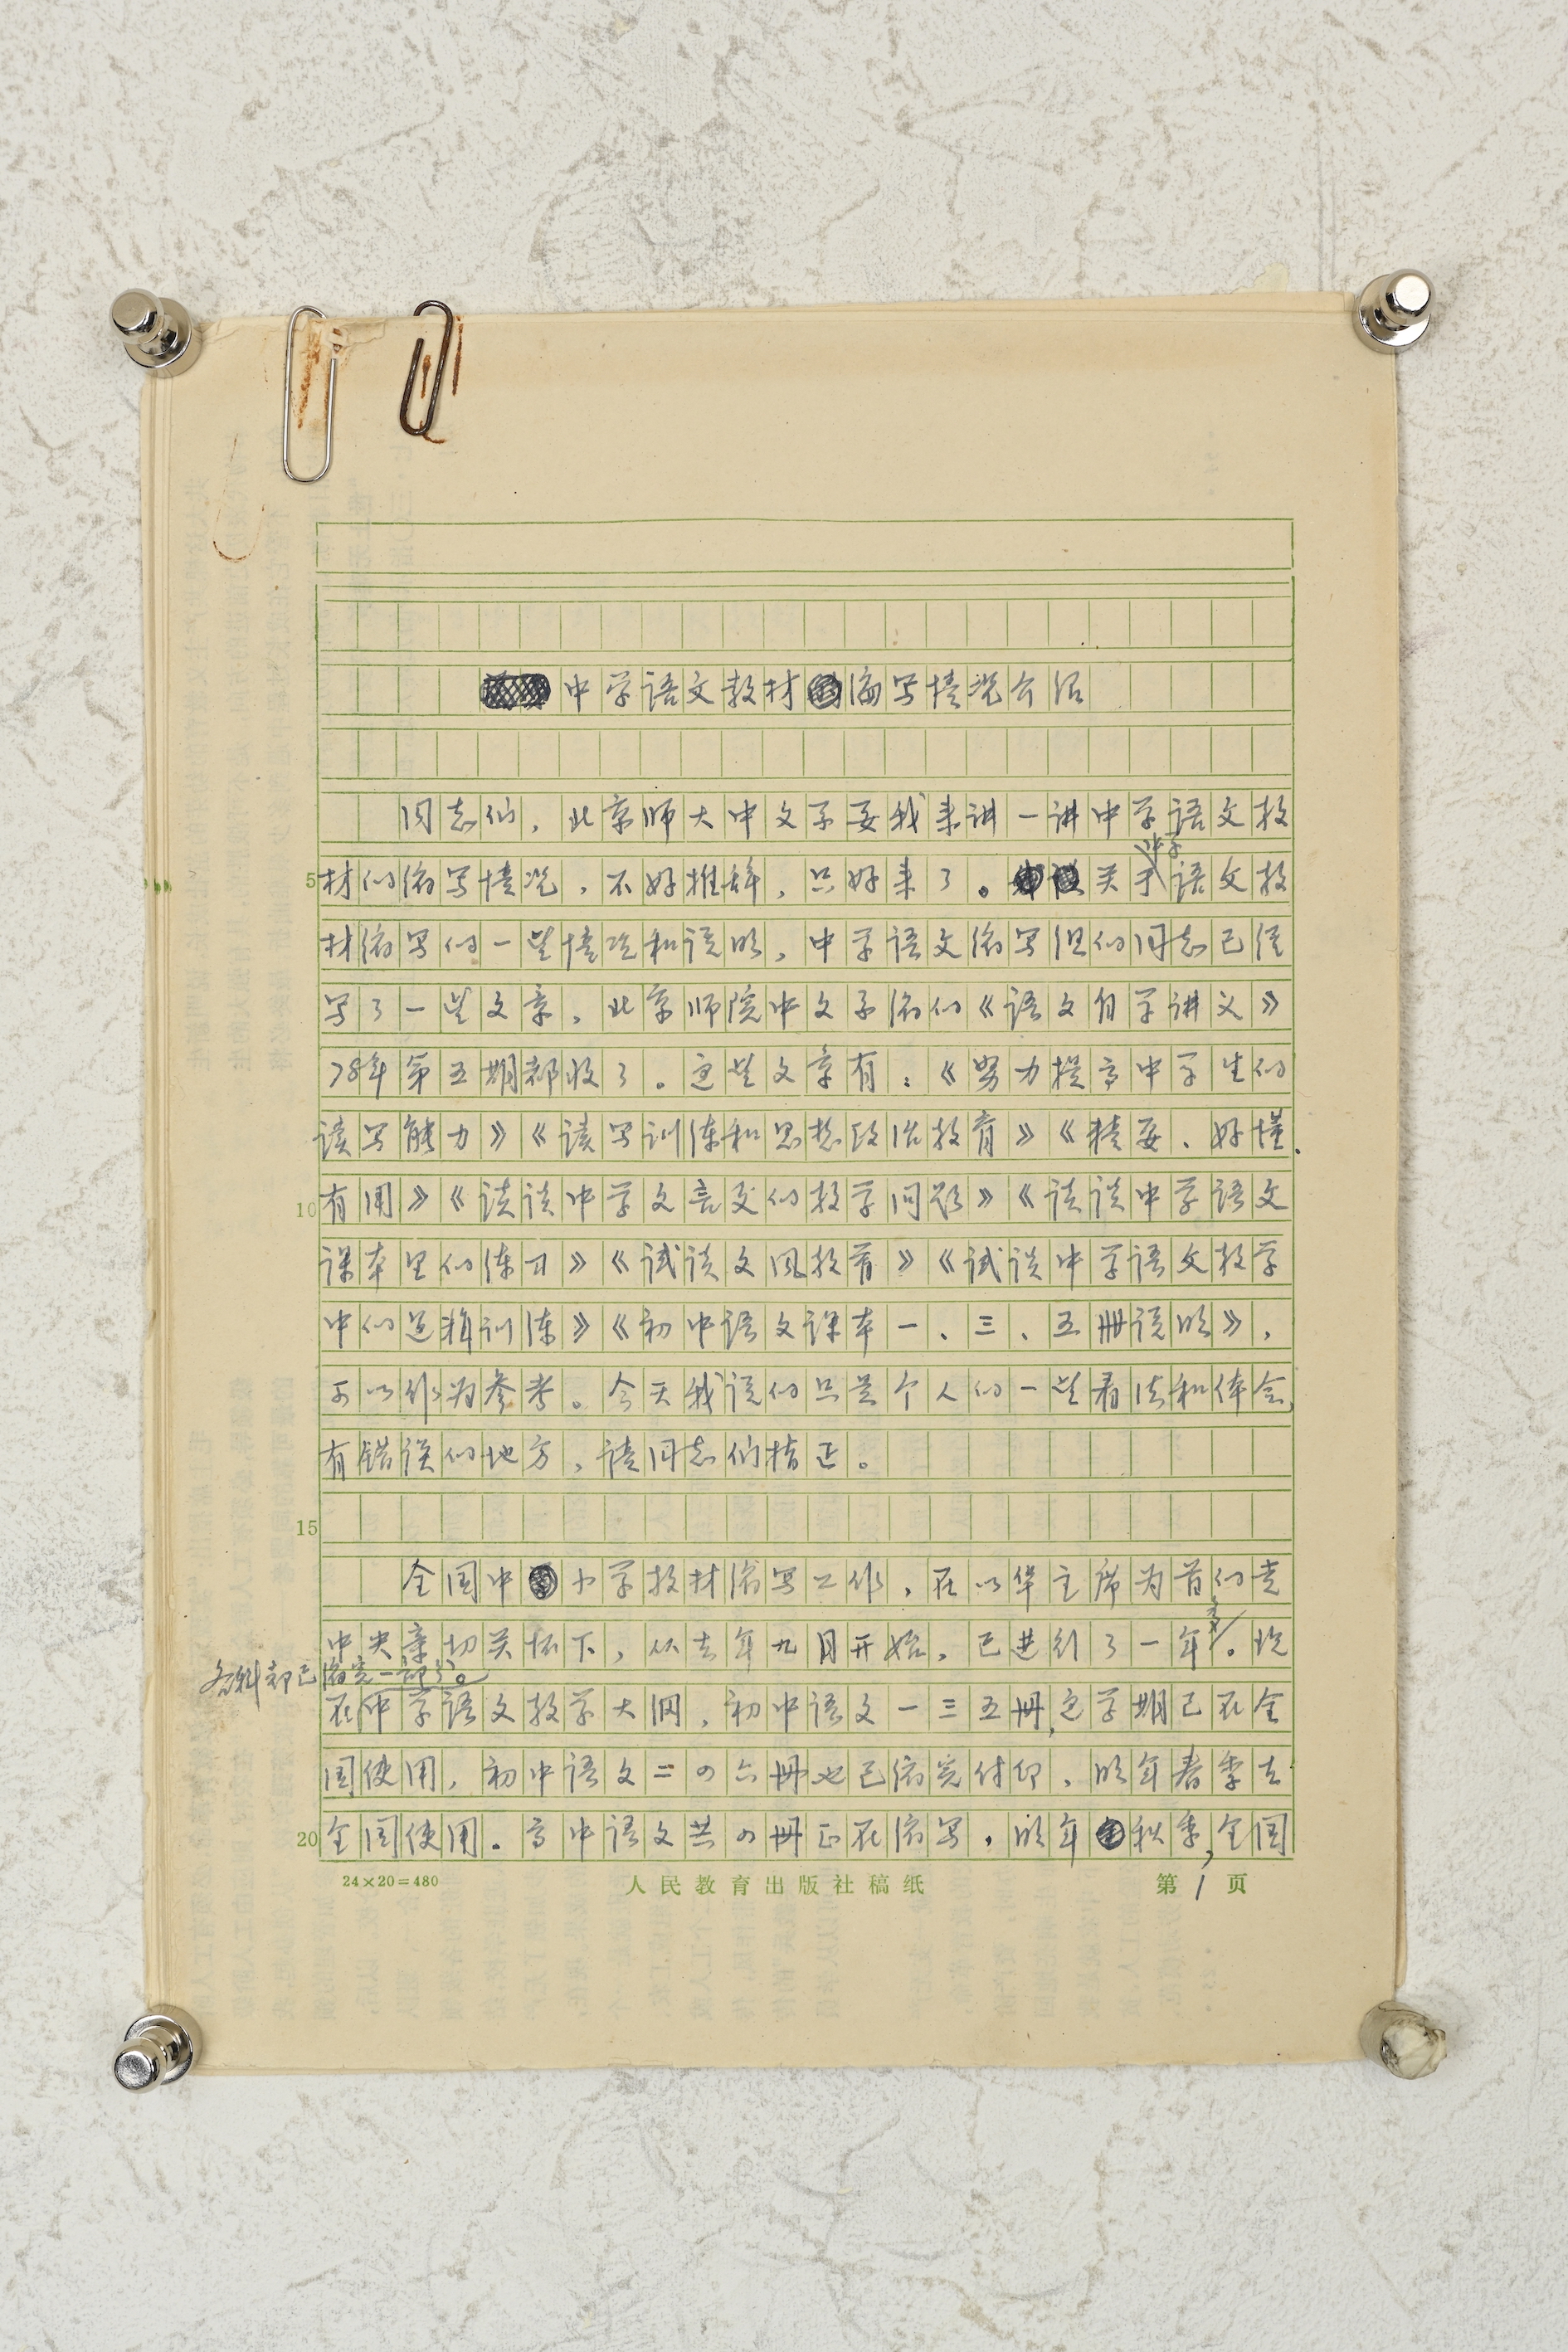 中学语文教材编写情况介绍
同志们，北京师大中文系要我来讲一讲中学语文教
5材的编写情况，不好推辞，只好来了。关于中学语文教
材编写的一些情况和说明，中学语文编写组的同志已经
写了一些文章，北京师院中文系编的《语文自学讲义》
78年第五期都收了。这些文章有：《努力提高中学生的
读写能力》《读写训练和思想政治教育》《精要、好懂、
10有用》《谈谈中学文言文的教学问题》《谈谈中学语文
课本里的练习》《试谈文风教育》《试谈中学语文教学
中的逻辑训练》《初中语文课本一、三、五册说明》，
可以作为参考。今天我说的只是个人的一些看法和体会，
有错误的地方，请同志们指正。
15
全国中小学教材编写工作，在以华主席为首的党
中央亲切关怀下，从去年九月开始，已进行了一年多。现
各科都已编完一部分。
在中学语文教学大纲，初中语文一三五册，这学期已在全
国使用，初中语文二四六册也已编完付印，明年春季在
20全国使用。高中语文共四册正在编写，明年秋季，全国
24×20=480 人民教育出版社稿纸 第1页